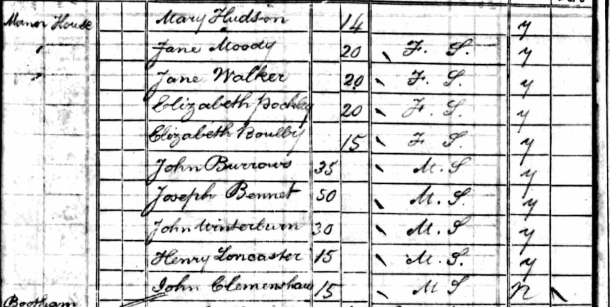 Manor House Mary Hudson 14 y
Jane Moody 20 F. S. y
Jane Walker 20 F. S. y
Elizabeth Pockley 20 F. S. y
Elizabeth Boulby 15 F S y
John Burrows 35 M. S. y
Joseph Bennet 50 M. S. y
John Winterburn 30 M. S. y
Henry Loncaster 15 M. S. y
Bootham John Clemenshaw 15 M S n